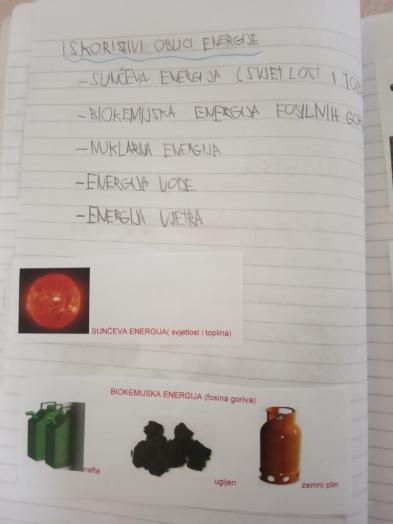 ISKORISTIVI OBLICI ENERGIJE
- SUNČEVA ENERGIJA (SVJETLOST I
- BIOKEMIJSKA ENERGIJA FOSILNIH
- NUKLARNA ENERGIJA
- ENERGIJA VODE
- ENERGIJA VJETRA
SUNČEVA ENERGIJA( svjetlost i toplina)
BIOKEMIJSKA ENERGIJA (fosina goriva)
nafta
ugljen
zemni plin